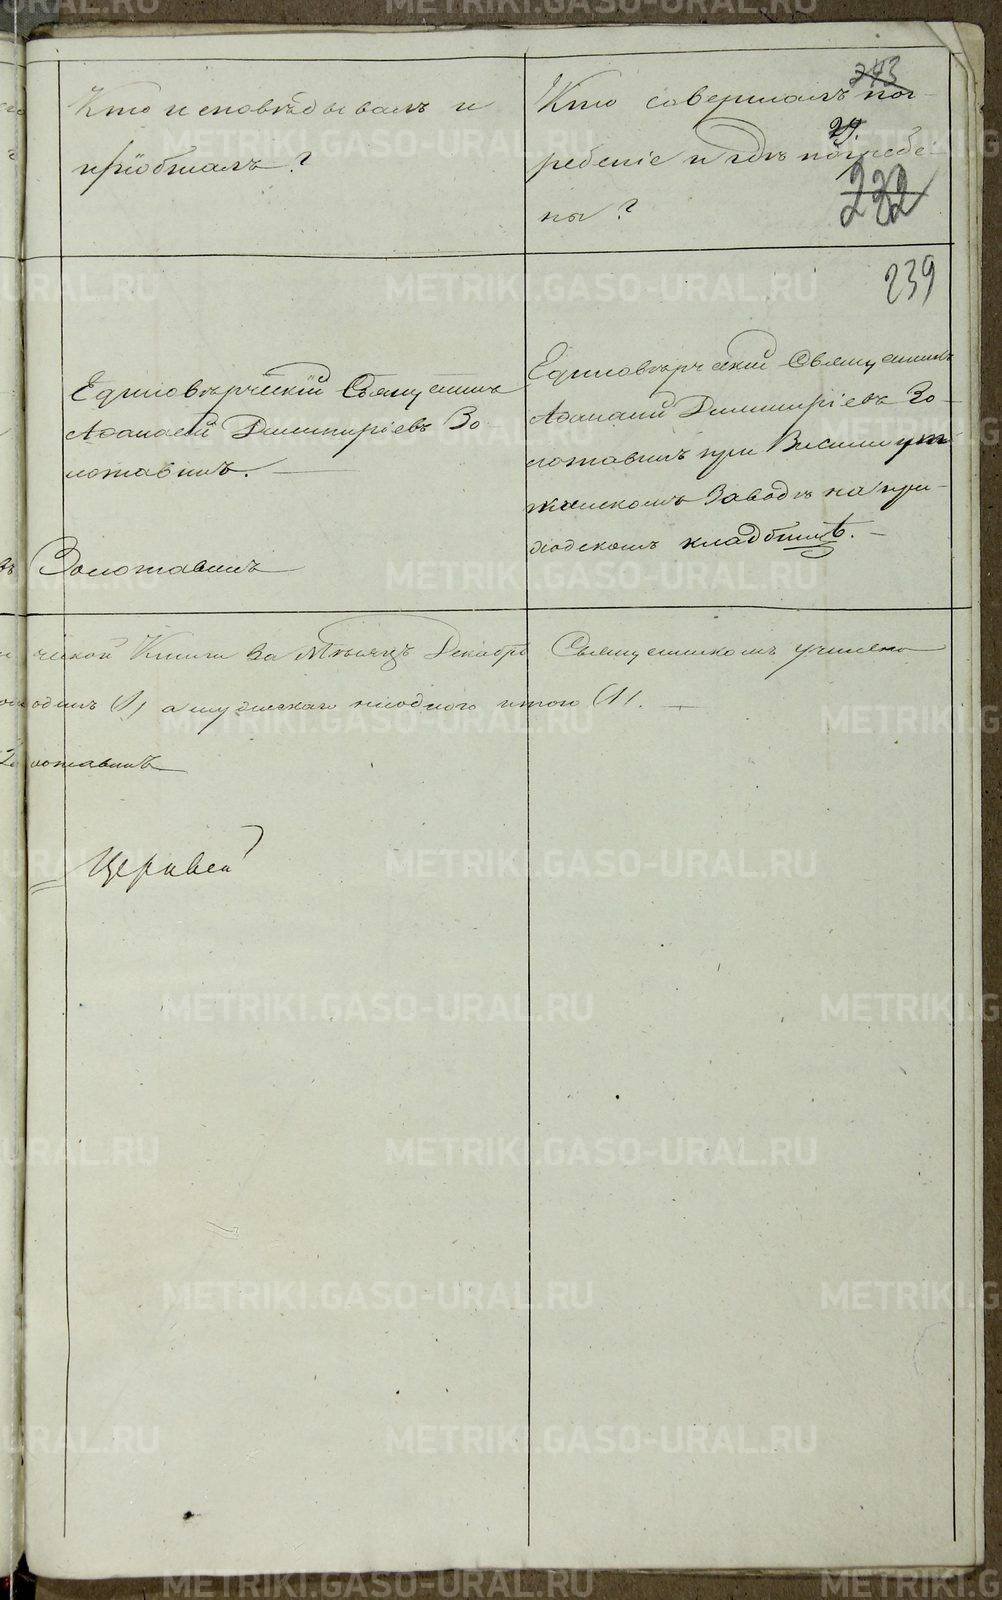 243
29.
232
239
Кто исповѣдывалъ и
пріобщалъ?
Кто совершалъ пог-
ребеніе и гдѣ погребе-
ны?
Единовѣрческій Священникъ
Афанасій Димитріевъ Зо-
лотавинъ.
Золотавинъ
Единовѣрческій Священникъ
Афанасій Димитріевъ Зо-
лотавинъ при Висимоут-
кинскомъ Заводѣ на при-
ходскомъ кладбищѣ.
ческой Книги за Мѣсяцъ Декабрь Священникомъ учинено
одинъ (1) а муженскаго ниодного итого (1).
лотавинъ
Церквей
METRIKI.GASO-URAL.RU